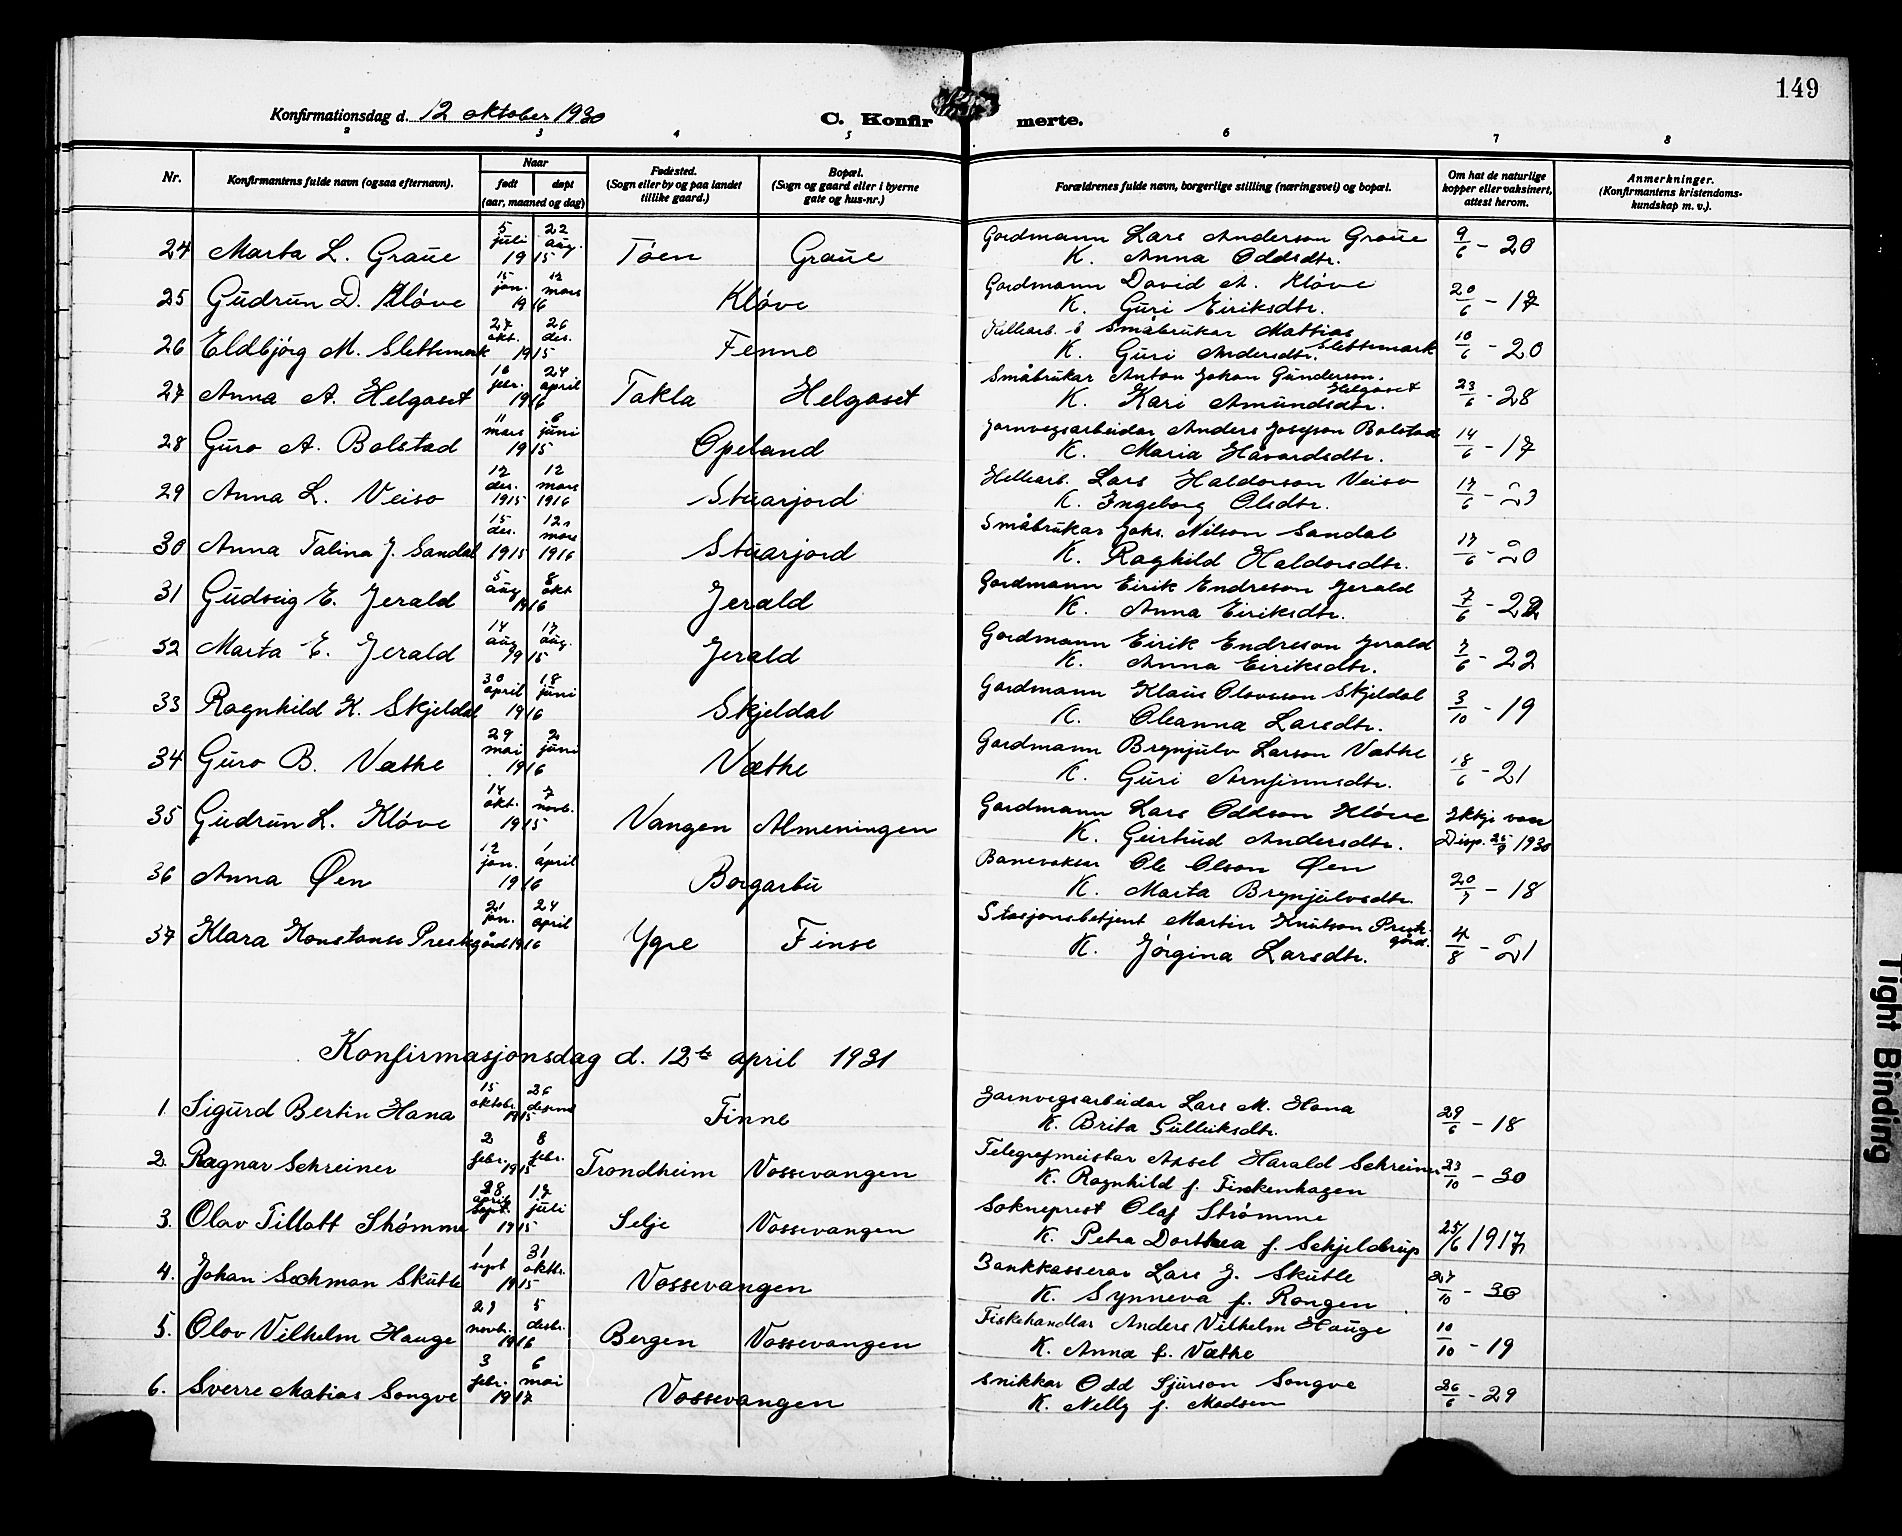 149
Konfirmationsdag d. 12 oktober 1930
C. Konfirmerte.
2 3 4 5 6 7 8
Nr.
Konfirmantens fulde navn (ogsaa efternavn).
Naar
født døpt
(aar, maaned og dag)
Fødested.
(Sogn eller by og paa landet
tillike gaard.)
Bopæl.
(Sogn og gaard eller i byerne
gate og hus-nr.)
Forældrenes fulde navn, borgerlige stilling (næringsvei) og bopæl.
Om hat de naturlige
kopper eller vaksinert,
attest herom.
Anmerkninger.
(Konfirmantens kristendoms-
kundskap m. v.).
24 Marta L. Graue 5 juli 22 aug. 1915 Tóen Graue Gardmann Lars Anderson Graue 9/6 - 20
K. Anna Oddsdtr.
25 Gudrun D. Klóve 15 jan. 12 mars 1916 Klóve Gardmann David A. Klóve 20/6 - 17
K. Guri Eiriksdtr.
26 Eldbjórg M. Slettemark 27 okt. 26 des. 1915 Fenne Småbrukar Mattias Slettemark 10/6 - 20
K. Guri Andersdtr.
27 Anna A. Helgaset 16 febr. 24 april 1916 Takla Helgaset Småbrukar Anton Johan Gunderson Helgaset 23/6 - 28
K. Kari Amundsdtr.
28 Guro A. Bolstad 11 mars 6 juni 1915 Opeland Jarnvegsarbeidar Anders Josefson Bolstad 14/6 - 17
K. Maria Håvardsdtr.
29 Anna L. Veiso 12 des. 1915 12 mars 1916 Stuarjord Hellearb. Lars Haldorson Veiso 17/6 - 23
K. Ingeborg Olsdtr.
30 Anna Talina J. Sandal 15 des. 1915 12 mars 1916 Stuarjord Småbrukar Johs. Nilson Sandal 17/6 - 20
K. Raghild Haldorsdtr.
31 Gudveig E. Jerald 5 aug. 8 okt. 1916 Jerald Gardmann Eirik Endreson Jerald 7/6 - 22
K. Anna Eiriksdtr.
32 Marta E. Jerald 14 aug. 17 aug. 1915 Jerald Gardmann Eirik Endreson Jerald 7/6 - 22
K. Anna Eiriksdtr.
33 Ragnhild K. Skjeldal 30 april 18 juni 1916 Skjeldal Gardmann Klaus Olavsson Skjeldal 3/10 - 19
K. Oleanna Larsdtr.
34 Guro B. Væthe 29 mai 2 juni 1916 Væthe Gardmann Brynjulv Larson Væthe 18/6 - 21
K. Guri Arnfinnsdtr.
35 Gudrun L. Klóve 14 okt. 7 novb. 1915 Vangen Almeningen Gardmann Lars Oddson Klóve Ikkje vaks
K. Geirtrud Andersdtr. Disp. 25/9 1930
36 Anna Øen 12 jan. 1 april 1916 Borgarbu Banevaktar Ole Olson Øen 20/7 - 18
K. Marta Brynjulvsdtr.
37 Klara Konstanse Prestegård 21 jan. 24 april 1916 Ygre Finse Stasjonsbetjent Martin Knutson Prestegård. 4/8 - 21
K. Jórgina Larsdtr.
Konfirmasjonsdag d. 12te april 1931
1. Sigurd Bertin Hana 15 oktobr. 26 desemb 1915 Finne Jarnvegsarbeidar Lars M. Hana 29/6 - 18
K. Brita Gulleiksdtr.
2. Ragnar Schreiner 2 febr. 8 febr. 1915 Trondheim Vossevangen Telegrafmeistar Axsel Harald Schreiner 23/10 - 30
K. Ragnhild f. Finckenhagen
3. Olav Tillott Strómme 28 april 17 juli 1915 Selje Vossevangen Sokneprest Olaf Strómme 25/6 1917
K. Petra Dorthea f. Schjelderup
4. Johan Sechman Skutle 1 sept 31 oktbr. 1915 Vossevangen Bankkasserar Lars J. Skutle 27/10 - 30
K. Synneva f. Rongen
5. Olav Vilhelm Hauge 27 novbr. 5 desbr. 1916 Bergen Vossevangen Fiskehandlar Anders Vilhelm Hauge 10/10 - 19
K. Anna f. Væthe
6. Sverre Matias Songve 3 febr. 6 mai 1917 Vossevangen Snikkar Odd Sjurson Songve 26/6 - 29
K. Nelly f. Madsen
Tight Binding